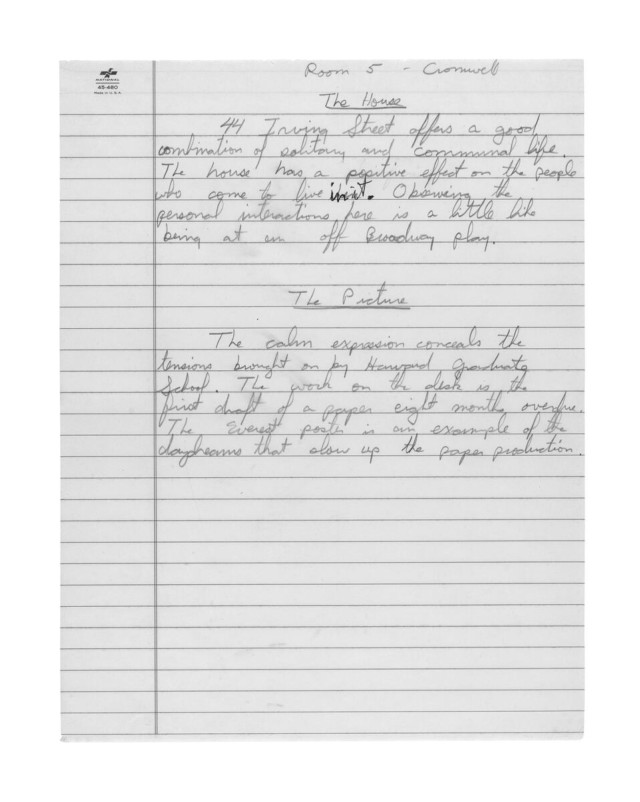 NATIONAL
45-480
MADE IN U.S.A.
Room 5 - Cromwell
The House
44 Irving Street offers a good
combination of solitary and communal life.
The house has a positive effect on the people
who come to live in it. Observing the
personal interactions here is a little like
being at an off Broadway play.
The Picture
The calm expression conceals the
tensions brought on by Harvard Graduate
School. The work on the desk is the
first draft of a paper eight months overdue.
The Everest poster is an example of the
daydreams that slow up the paper production.